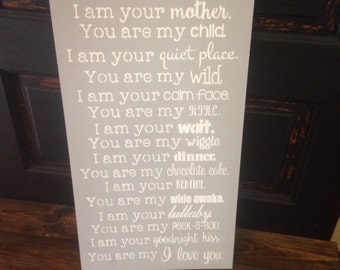 I am your mother.
You are my child.
I am your quiet place.
You are my wild.
I am your calm face.
You are my giggle.
I am your wait.
You are my wiggle.
I am your dinner.
You are my chocolate cake.
I am your bedtime.
You are my wide awake.
I am your lullaby.
You are my peek-a-boo.
I am your goodnight kiss.
You are my I love you.